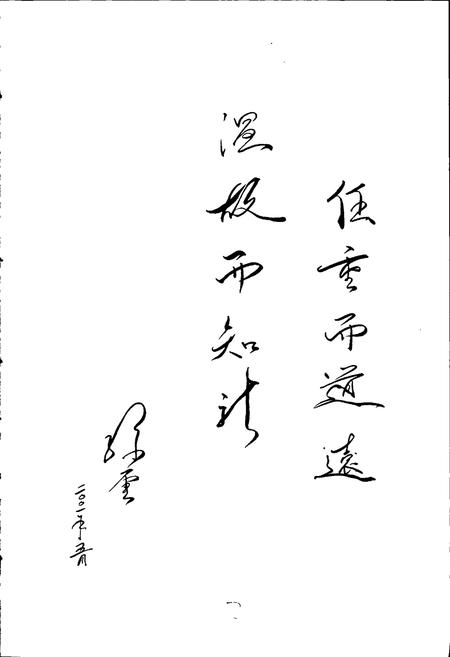 任重而道遠
溫故而知新
綠雲
二〇一一年五月